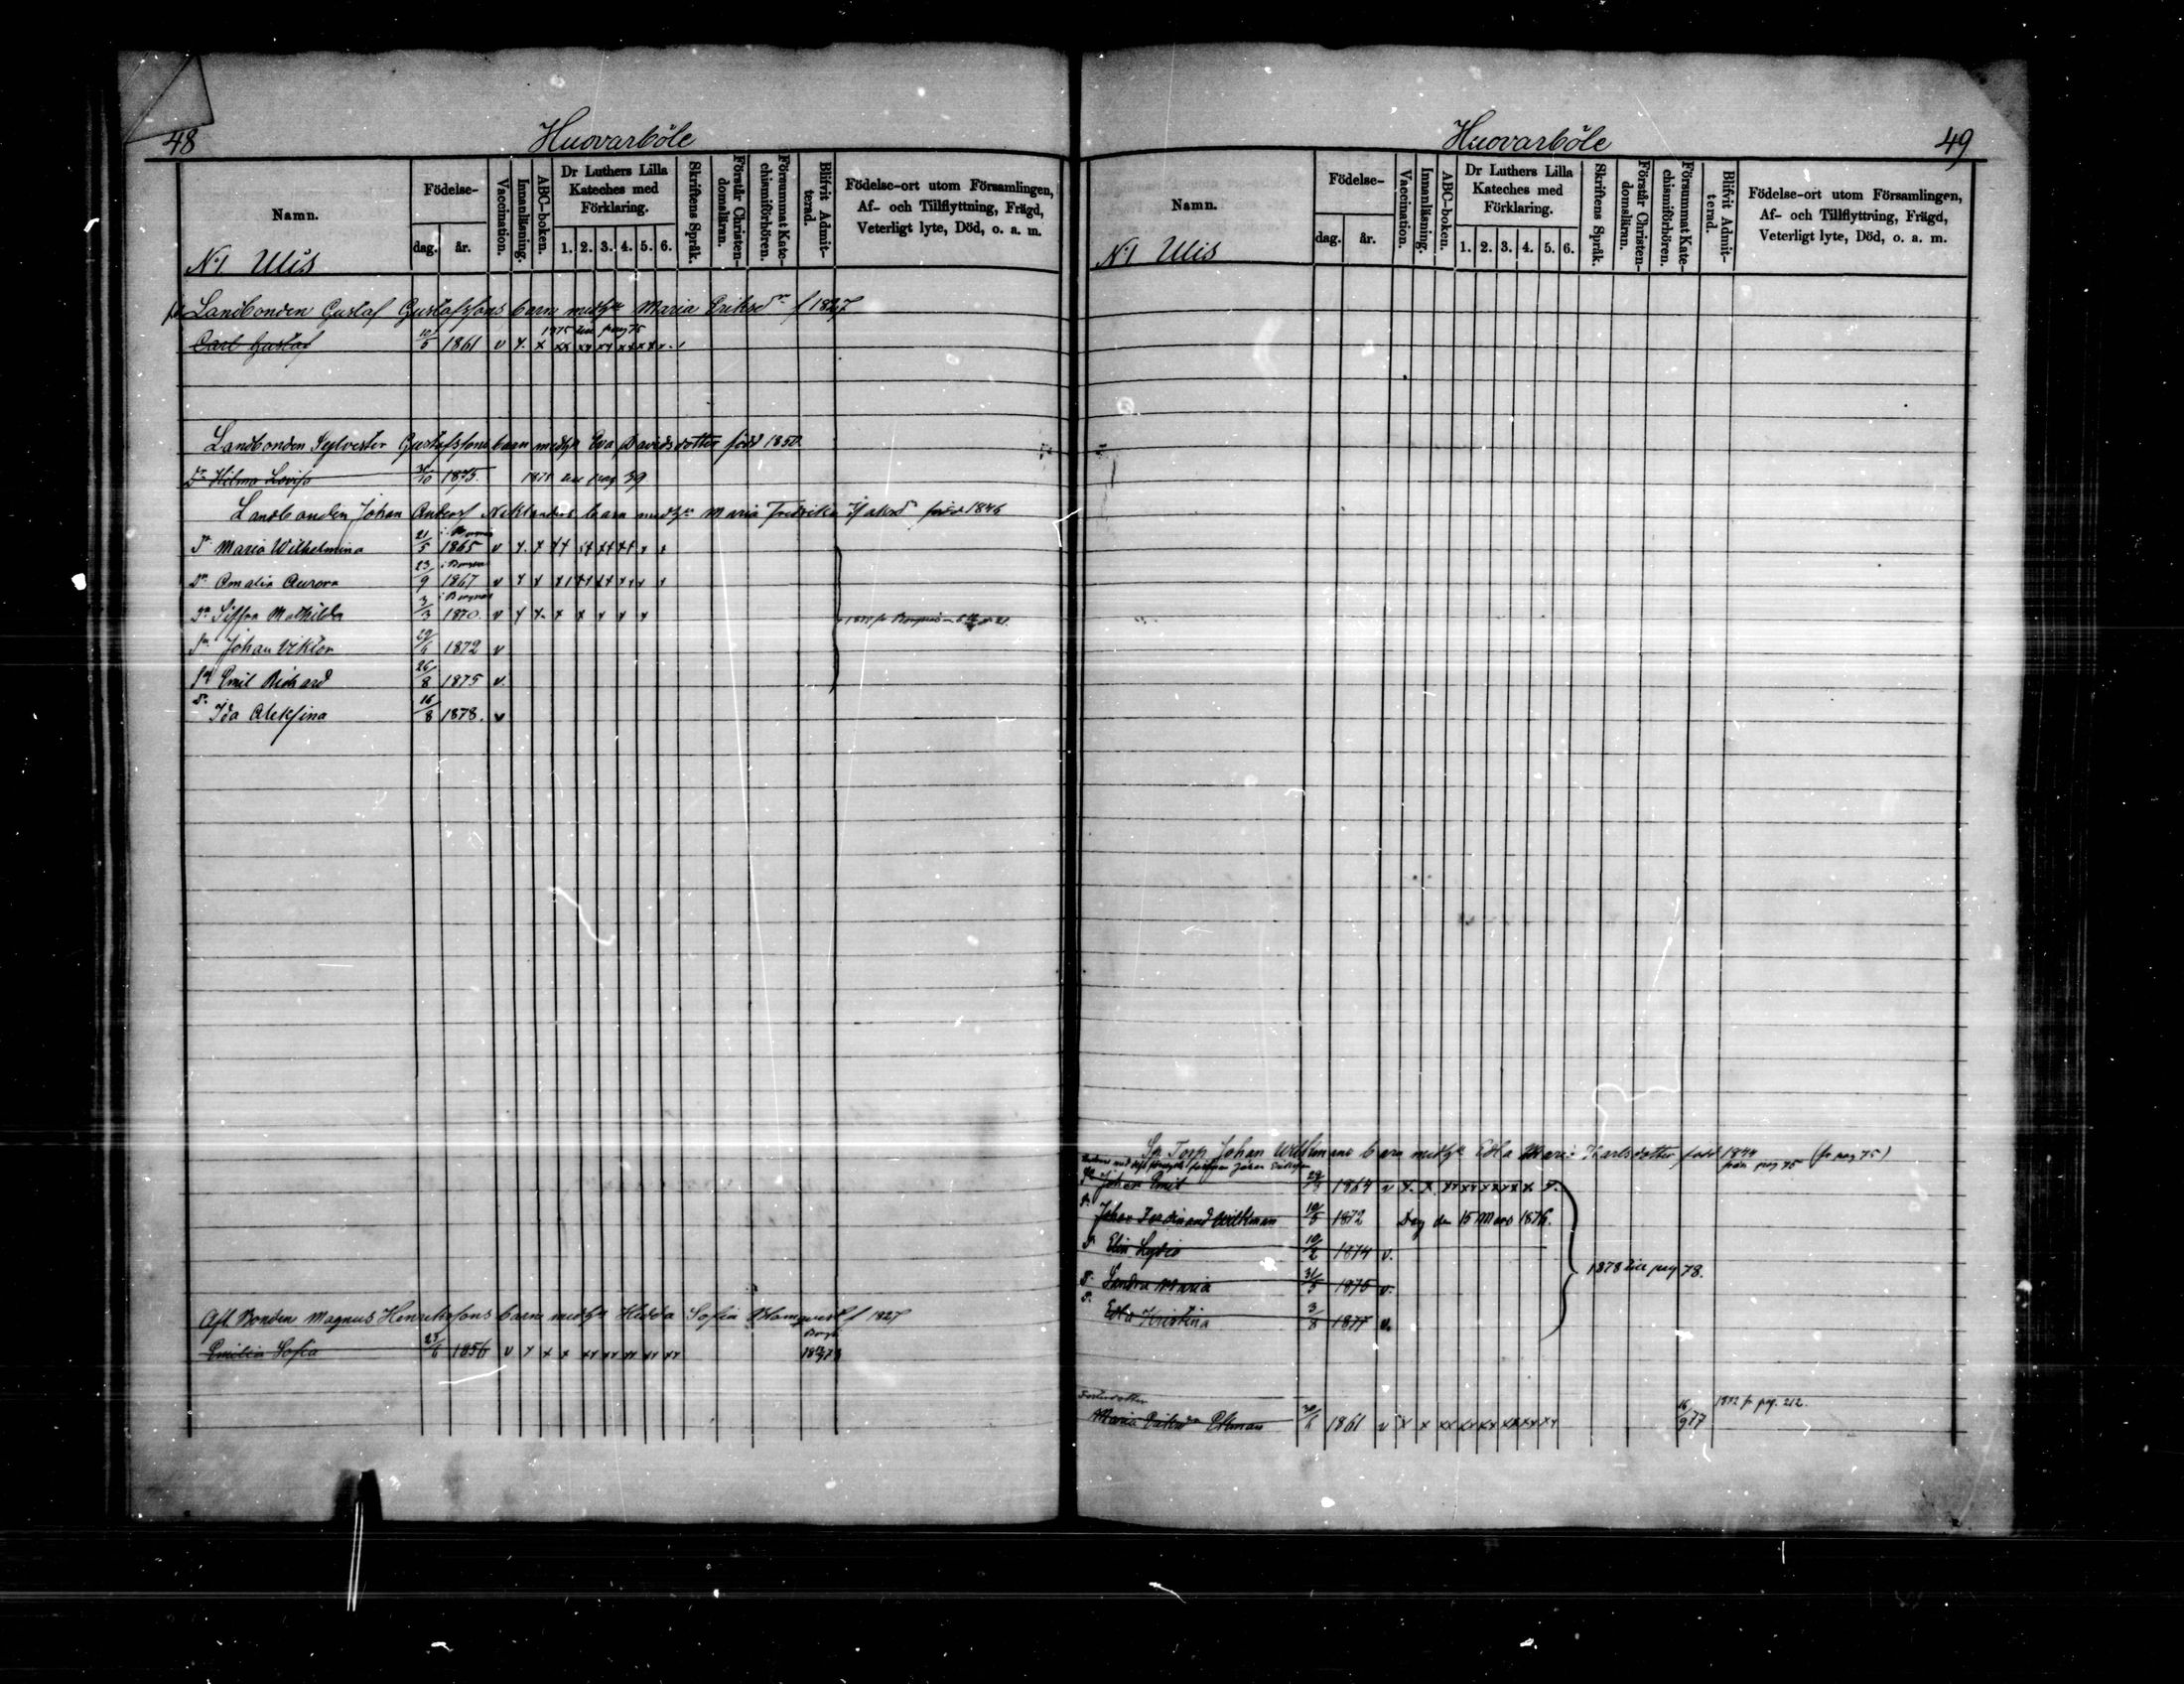 48
Huovarböle
Namn.
Födelse-
dag.
år.
Vaccination.
Innanläsning.
ABC-boken.
Dr Luthers Lilla Kateches med Förklaring.
1. 2. 3. 4. 5. 6.
Skriftens Språk.
Förstår Christendomsläran.
Försummat Katechismiförhören.
Blifvit Admitterad.
Födelse-ort utom Församlingen, Af- och Tillflyttning, Frägd, Veterligt lyte, Död, o. a. m.
N:1 Ulis
Landbonden Gustaf Gustafssons barn med h. Maria Eriksdr f 1827
1875 till pag 75
Carl Gustaf 10/5 1861 v x x xx xx xx xx xx x
Landbonden Sylvester Gustafssons barn med h. Eva Davidsdotter född 1850
Dr Hilma Lovisa 31/10 1875. 1878 till pag 39
Landbonden Johan Anders barn med h. Maria Fredrika född 1846
Dr Maria Wilhelmina 21/5 1865 v x x xx xx xx xx x x
Dr Amalia Aurora 23/9 1867 v x x
Mathilda 3/3 1870 v x x x x x x x
Sn Johan Viktor 29/6 1872 v
Sn Emil Rickard 26/8 1875 v.
Dr Ida Aleksina 16/8 1878. v
Aft. Bonden Magnus Henrikssons barn med h. Hedda Sofia Blomqvist f 1827
Emilia Sofia 25/6 1856 v x x x xx xx xx xx xx
49
Huovarböle
Namn.
Födelse-
dag.
år.
Vaccination.
Innanläsning.
ABC-boken.
Dr Luthers Lilla Kateches med Förklaring.
1. 2. 3. 4. 5. 6.
Skriftens Språk.
Förstår Christendomsläran.
Försummat Katechismiförhören.
Blifvit Admitterad.
Födelse-ort utom Församlingen, Af- och Tillflyttning, Frägd, Veterligt lyte, Död, o. a. m.
N:1 Ulis
Torp Johan Wilkmans barn med h. Edla Maria Karlsdotter född 1844 (fr pag 75)
från pag 75
Johan Emil 1864 v x x xx xx xx xx x x
Johan Ferdinand Wilkman 10/5 1872 Dog den 15 Mars 1876.
Elin Lydia 10/2 1874 v.
1878 till pag 78.
Sandra Maria 31/5 1875 v.
Edla Kristina 3/8 1877 v.
1882 fr pag. 212.
Maria 1861 v x x xx xx xx xx xx xx 16/9 77